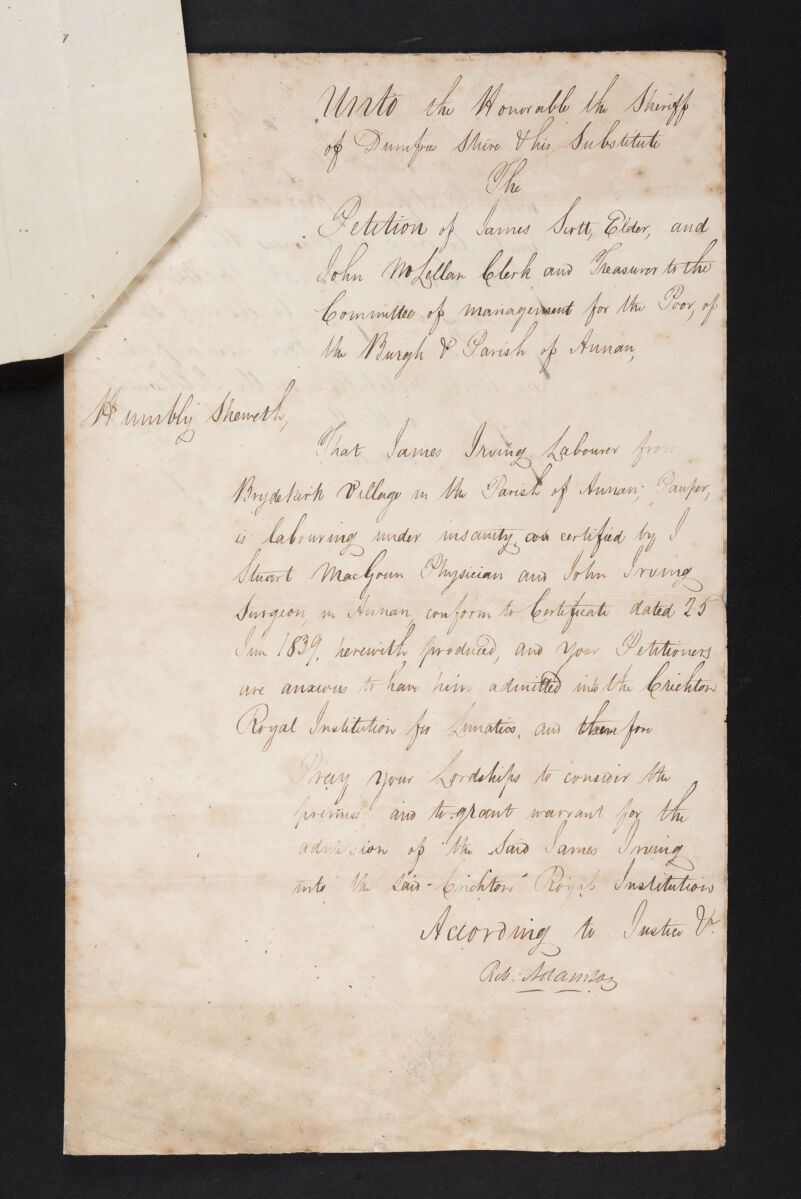 Unto the Honorable the Sheriff
of Dumfries Shire & his Substitute
The
Petition of James Scott, Elder, and
John McLellan Clerk and Treasurer to the
Committee of management for the Poor, of
the Burgh & Parish of Annan,
Humbly Sheweth,
That James Irving Labourer from
Brydekirk Village in the Parish of Annan, Pauper,
is labouring under insanity as certified by J
Stuart MacGoun Physician and John Irving
Surgeon, in Annan, conform to Certificate dated 25
June 1839, herewith produced, and your Petitioners
are anxious to have him admitted into the Crichton
Royal Institution for Lunatics, and therefore
Pray your Lordships to consider the
premises and to grant warrant for the
admission of the said James Irving
into the said Crichton Royal Institution
Acording to Justice &c
Rob. Adamson